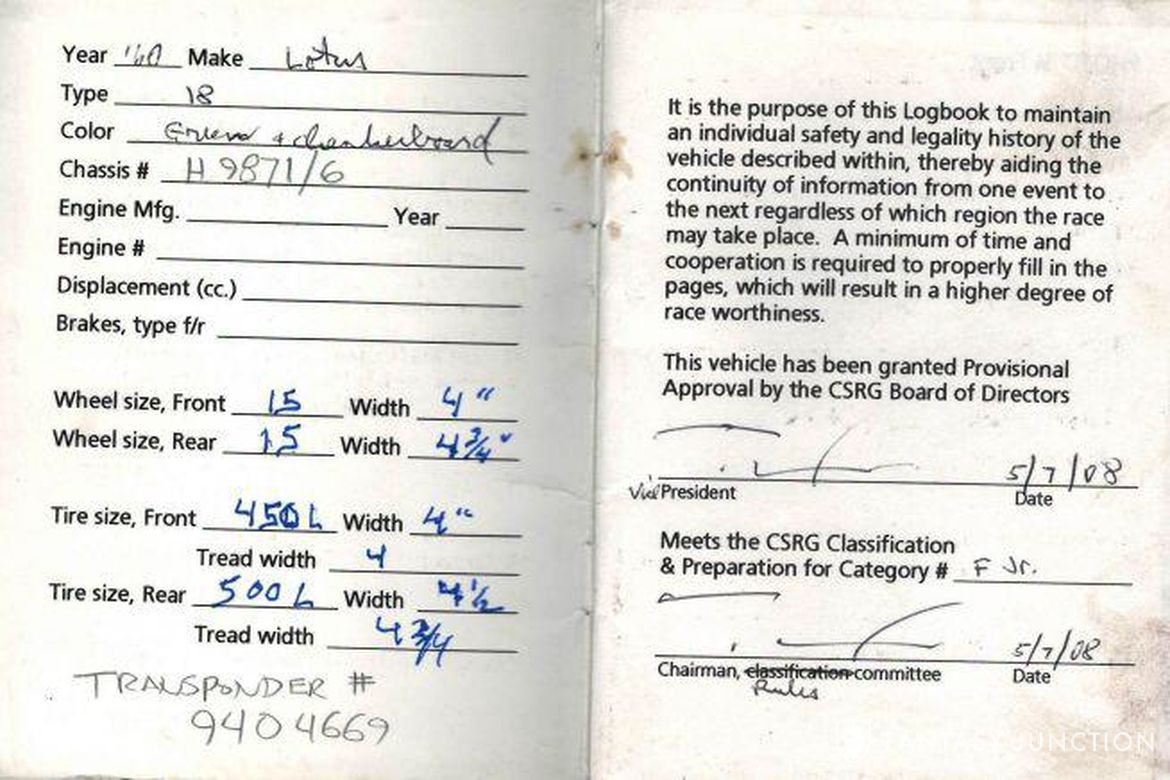 Year '60 Make Lotus
Type 18
Color Green + checkerboard
Chassis # H 9871/6
Engine Mfg. Year
Engine #
Displacement (cc.)
Brakes, type f/r
Wheel size, Front 15 Width 4"
Wheel size, Rear 15 Width 4 3/4"
Tire size, Front 450 L Width 4"
Tread width 4
Tire size, Rear 500 L Width 4 1/2
Tread width 4 3/4
TRANSPONDER #
9404669
It is the purpose of this Logbook to maintain
an individual safety and legality history of the
vehicle described within, thereby aiding the
continuity of information from one event to
the next regardless of which region the race
may take place. A minimum of time and
cooperation is required to properly fill in the
pages, which will result in a higher degree of
race worthiness.
This vehicle has been granted Provisional
Approval by the CSRG Board of Directors
5/7/08
Vice President Date
Meets the CSRG Classification
& Preparation for Category # F Jr.
5/7/08
Chairman, classification committee Date
Rules
JUNCTION